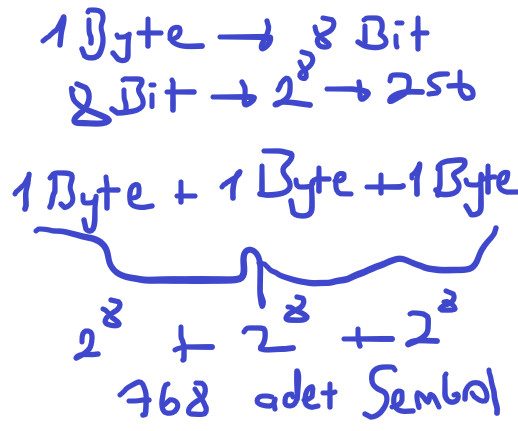 1 Byte → 8 Bit
8 Bit → 2⁸ → 256
1 Byte + 1 Byte + 1 Byte
2⁸ + 2⁸ + 2⁸
768 adet Sembol